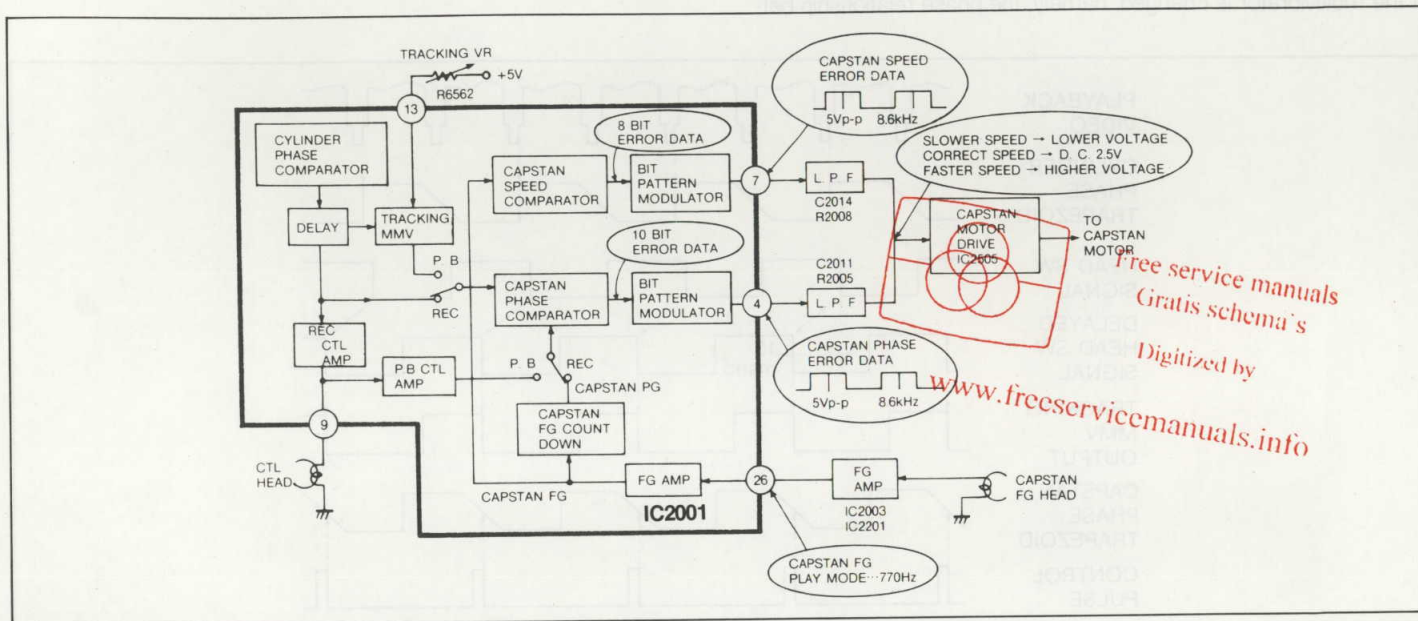 TRACKING VR
+5V
R6562
13
CYLINDER
PHASE
COMPARATOR
DELAY
TRACKING
MMV
P. B
REC
REC
CTL
AMP
P.B CTL
AMP
9
CTL
HEAD
CAPSTAN
SPEED
COMPARATOR
8 BIT
ERROR DATA
BIT
PATTERN
MODULATOR
7
10 BIT
ERROR DATA
CAPSTAN
PHASE
COMPARATOR
BIT
PATTERN
MODULATOR
4
P. B
REC
CAPSTAN PG
CAPSTAN
FG COUNT
DOWN
CAPSTAN FG
FG AMP
26
IC2001
CAPSTAN SPEED
ERROR DATA
5Vp-p 8.6kHz
SLOWER SPEED → LOWER VOLTAGE
CORRECT SPEED → D. C. 2.5V
FASTER SPEED → HIGHER VOLTAGE
L. P. F
C2014
R2008
CAPSTAN
MOTOR
DRIVE
IC2505
TO
CAPSTAN
MOTOR
C2011
R2005
L. P. F
CAPSTAN PHASE
ERROR DATA
5Vp-p 8.6kHz
FG
AMP
IC2003
IC2201
CAPSTAN
FG HEAD
CAPSTAN FG
PLAY MODE···770Hz
Free service manuals
Gratis schema's
Digitized by
www.freeservicemanuals.info
PLAYBACK
SIGNAL
DELAYED
SIGNAL
MMV
OUTPUT
PHASE
TRAPEZOID
CONTROL
PULSE